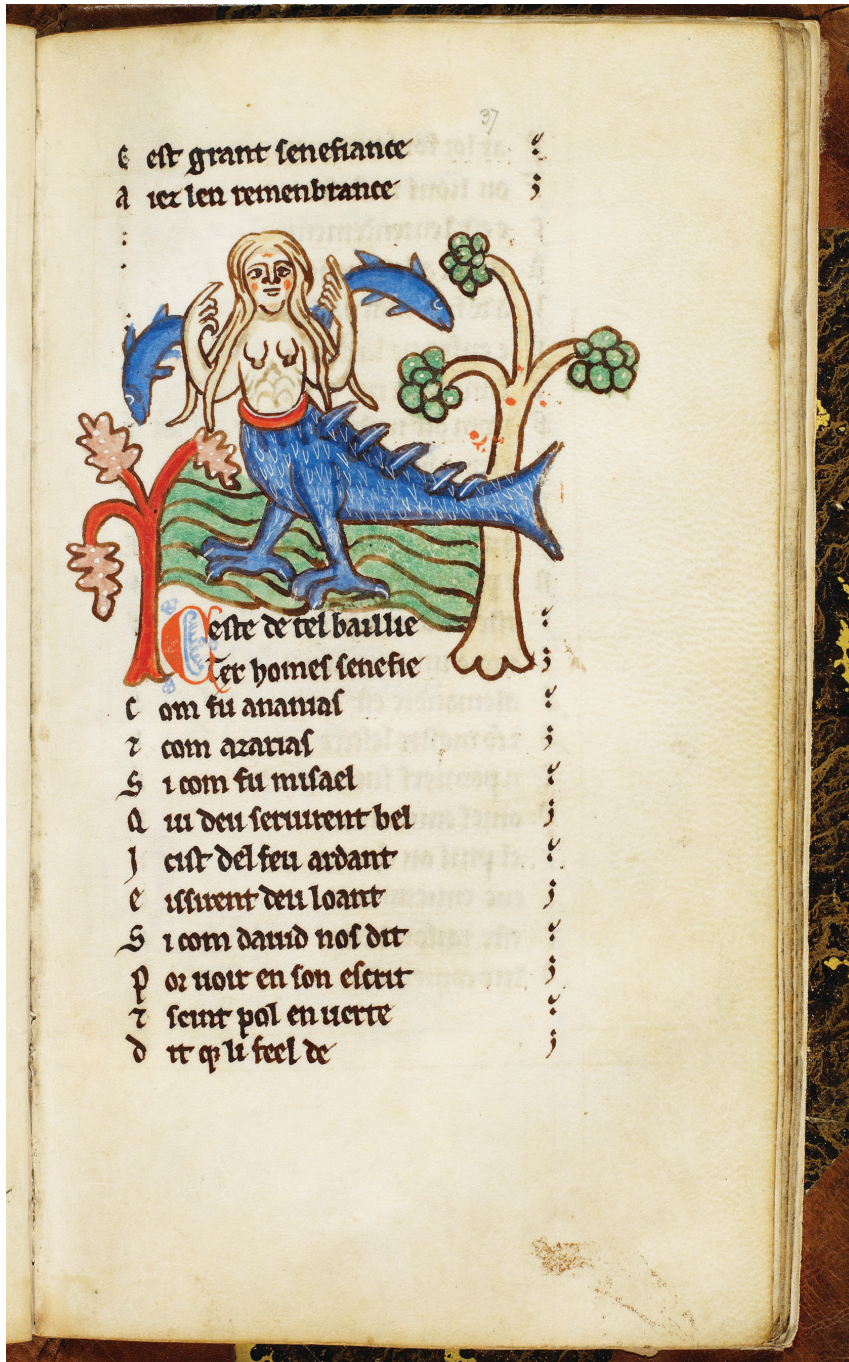 37
C est grant senefiance
A iez len remenbrance
Ceste de tel baillie
Tex homes senefie
C om fu ananias
⁊ com azarias
S i com fu misael
Q ui deu seruirent bel
I cist del feu ardant
E issirent deu loant
S i com dauid nos dit
P or uoir en son escrit
⁊ seint pol en uerte
D it q li feel de